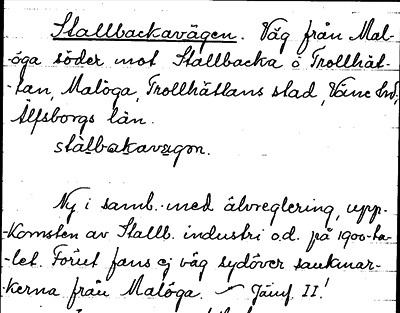 Stallbackavägen. Väg från Mal-
-öga söder mot Stallbacka ö Trollhät-
-tan, Malöga, Trollhättans stad, Väne hd,
Älfsborgs län.
stàlbakavägen.
Ny i samb. med älvreglering, upp-
-komsten av Stallb. industri o.d. på 1900-ta-
-let. Förut fans ej väg sydöver sankmar-
-kerna från Malöga. – Jämf. II!